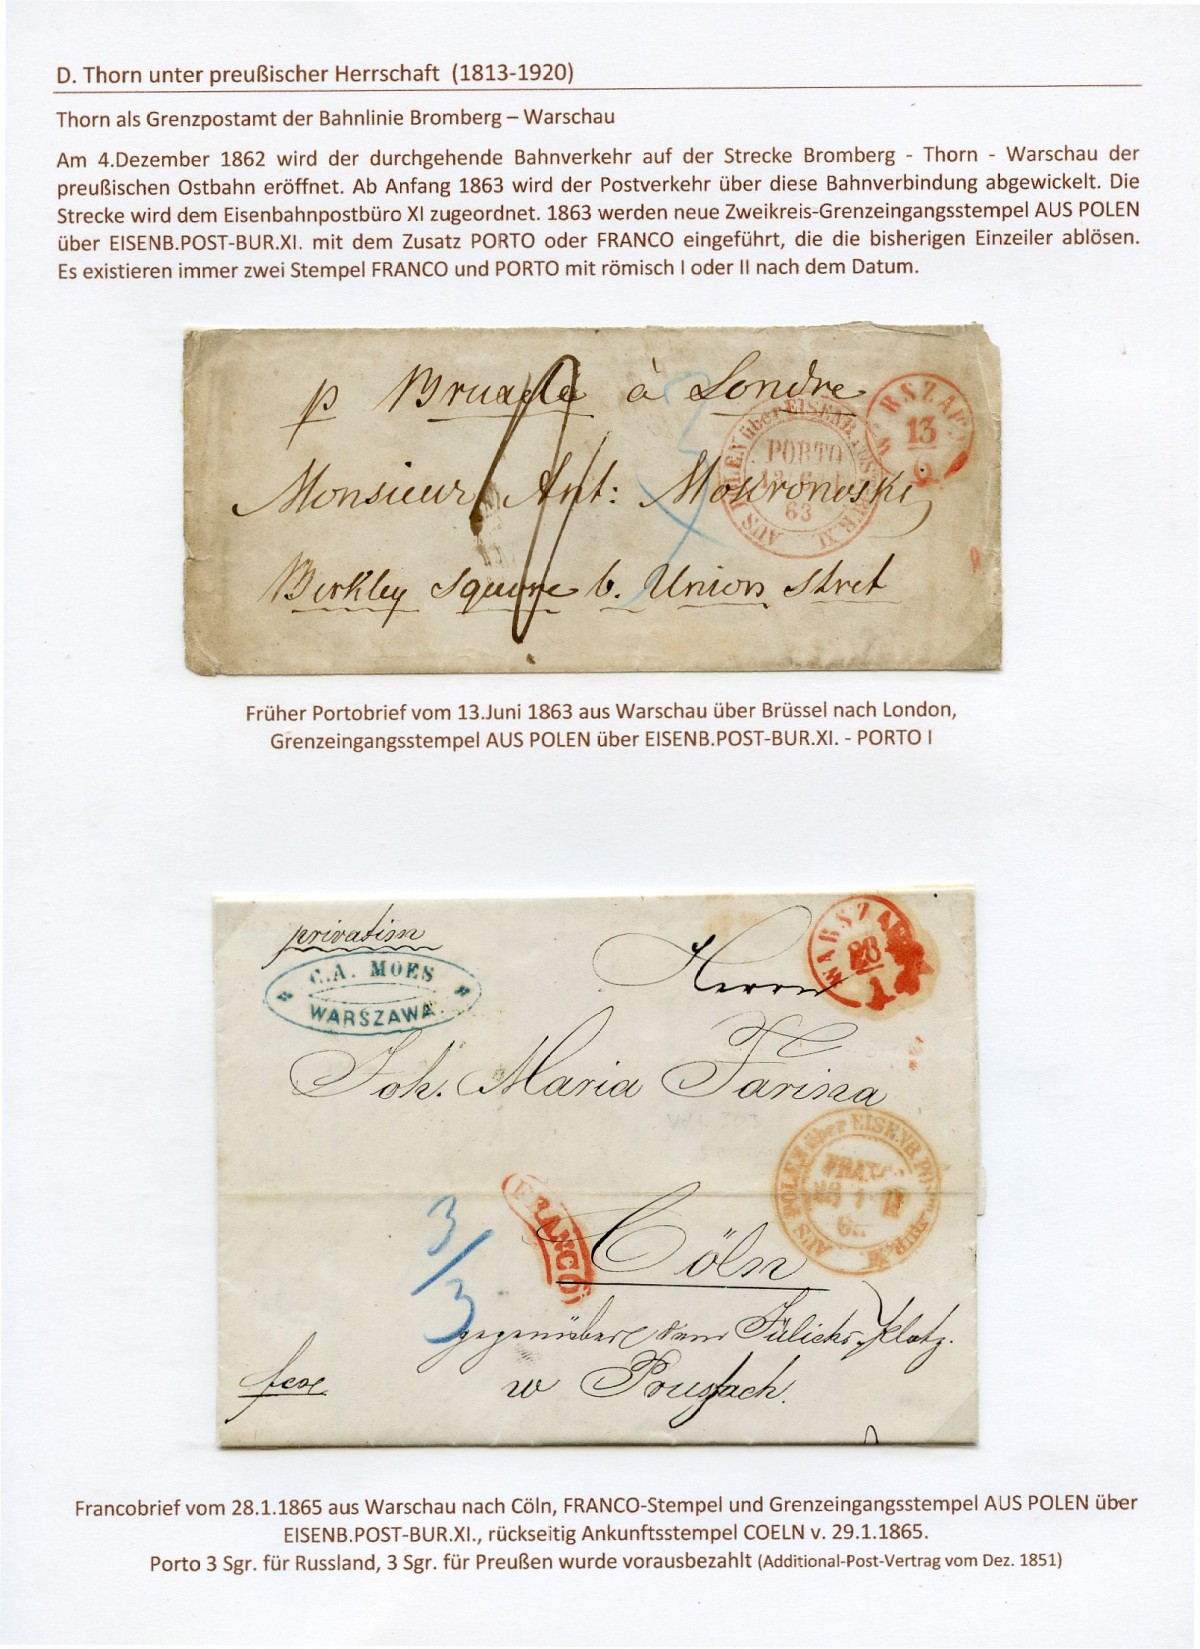 D. Thorn unter preußischer Herrschaft (1813-1920)
Thorn als Grenzpostamt der Bahnlinie Bromberg – Warschau
Am 4.Dezember 1862 wird der durchgehende Bahnverkehr auf der Strecke Bromberg - Thorn - Warschau der
preußischen Ostbahn eröffnet. Ab Anfang 1863 wird der Postverkehr über diese Bahnverbindung abgewickelt. Die
Strecke wird dem Eisenbahnpostbüro XI zugeordnet. 1863 werden neue Zweikreis-Grenzeingangsstempel AUS POLEN
über EISENB.POST-BUR.XI. mit dem Zusatz PORTO oder FRANCO eingeführt, die die bisherigen Einzeiler ablösen.
Es existieren immer zwei Stempel FRANCO und PORTO mit römisch I oder II nach dem Datum.
p Bruxelle à Londre
WARSZAWA
13
AUS POLEN über EISENB. POST-BUR.XI.
PORTO
63
Monsieur Ant: Mokronoski
Berkley Square b. Union Stret
Früher Portobrief vom 13.Juni 1863 aus Warschau über Brüssel nach London,
Grenzeingangsstempel AUS POLEN über EISENB.POST-BUR.XI. - PORTO I
privatim
C.A. MOES
WARSZAWA.
WARSZAWA
28
1
Herrn
Joh. Maria Farina
AUS POLEN über EISENB. POST-BUR.XI.
FRANCO
3/3
FRANCO
Cöln
gegenüber dem Jülichs Platz.
w Prusach.
Francobrief vom 28.1.1865 aus Warschau nach Cöln, FRANCO-Stempel und Grenzeingangsstempel AUS POLEN über
EISENB.POST-BUR.XI., rückseitig Ankunftsstempel COELN v. 29.1.1865.
Porto 3 Sgr. für Russland, 3 Sgr. für Preußen wurde vorausbezahlt (Additional-Post-Vertrag vom Dez. 1851)